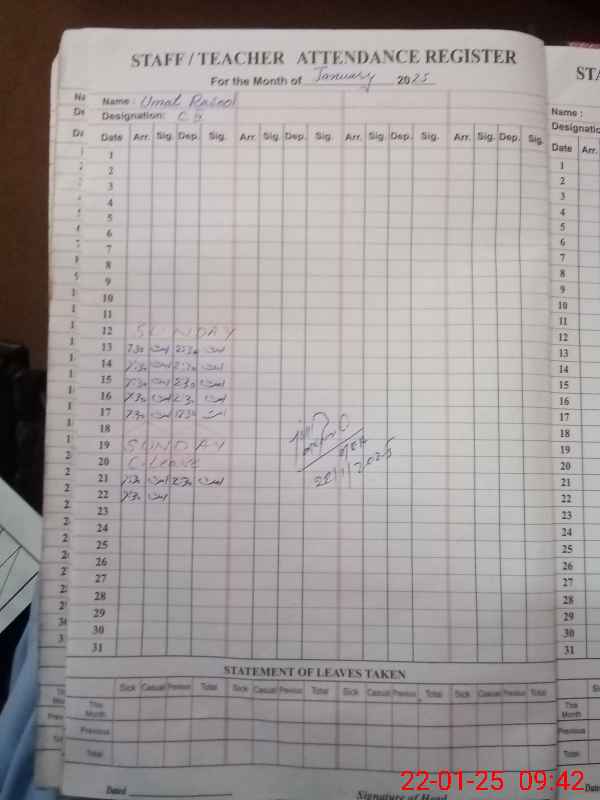 STAFF / TEACHER ATTENDANCE REGISTER
For the Month of January 2025
Name : Umal Rasool
Designation: C.S
Date Arr. Sig. Dep. Sig. Arr. Sig. Dep. Sig. Arr. Sig. Dep. Sig. Arr. Sig. Dep. Sig.
1
2
3
4
5
6
7
8
9
10
11
12 SUNDAY
13 7:30 2:30
14 7:30 2:30
15 7:30 2:30
16 7:30 2:30
17 7:30 12:30
18
19 SUNDAY
20 C-Leave
21 7:30 2:30
22 7:30
23
24
25
26
27
28
29
30
31
22/1/2025
STATEMENT OF LEAVES TAKEN
Sick Casual Previous Total Sick Casual Previous Total Sick Casual Previous Total Sick Casual Previous Total
This Month
Previous
Total
Dated
Signature of Head
STA
Name :
Designatio
Date Arr.
1
2
3
4
5
6
7
8
9
10
11
12
13
14
15
16
17
18
19
20
21
22
23
24
25
26
27
28
29
30
31
This Month
Previous
Total
22-01-25 09:42